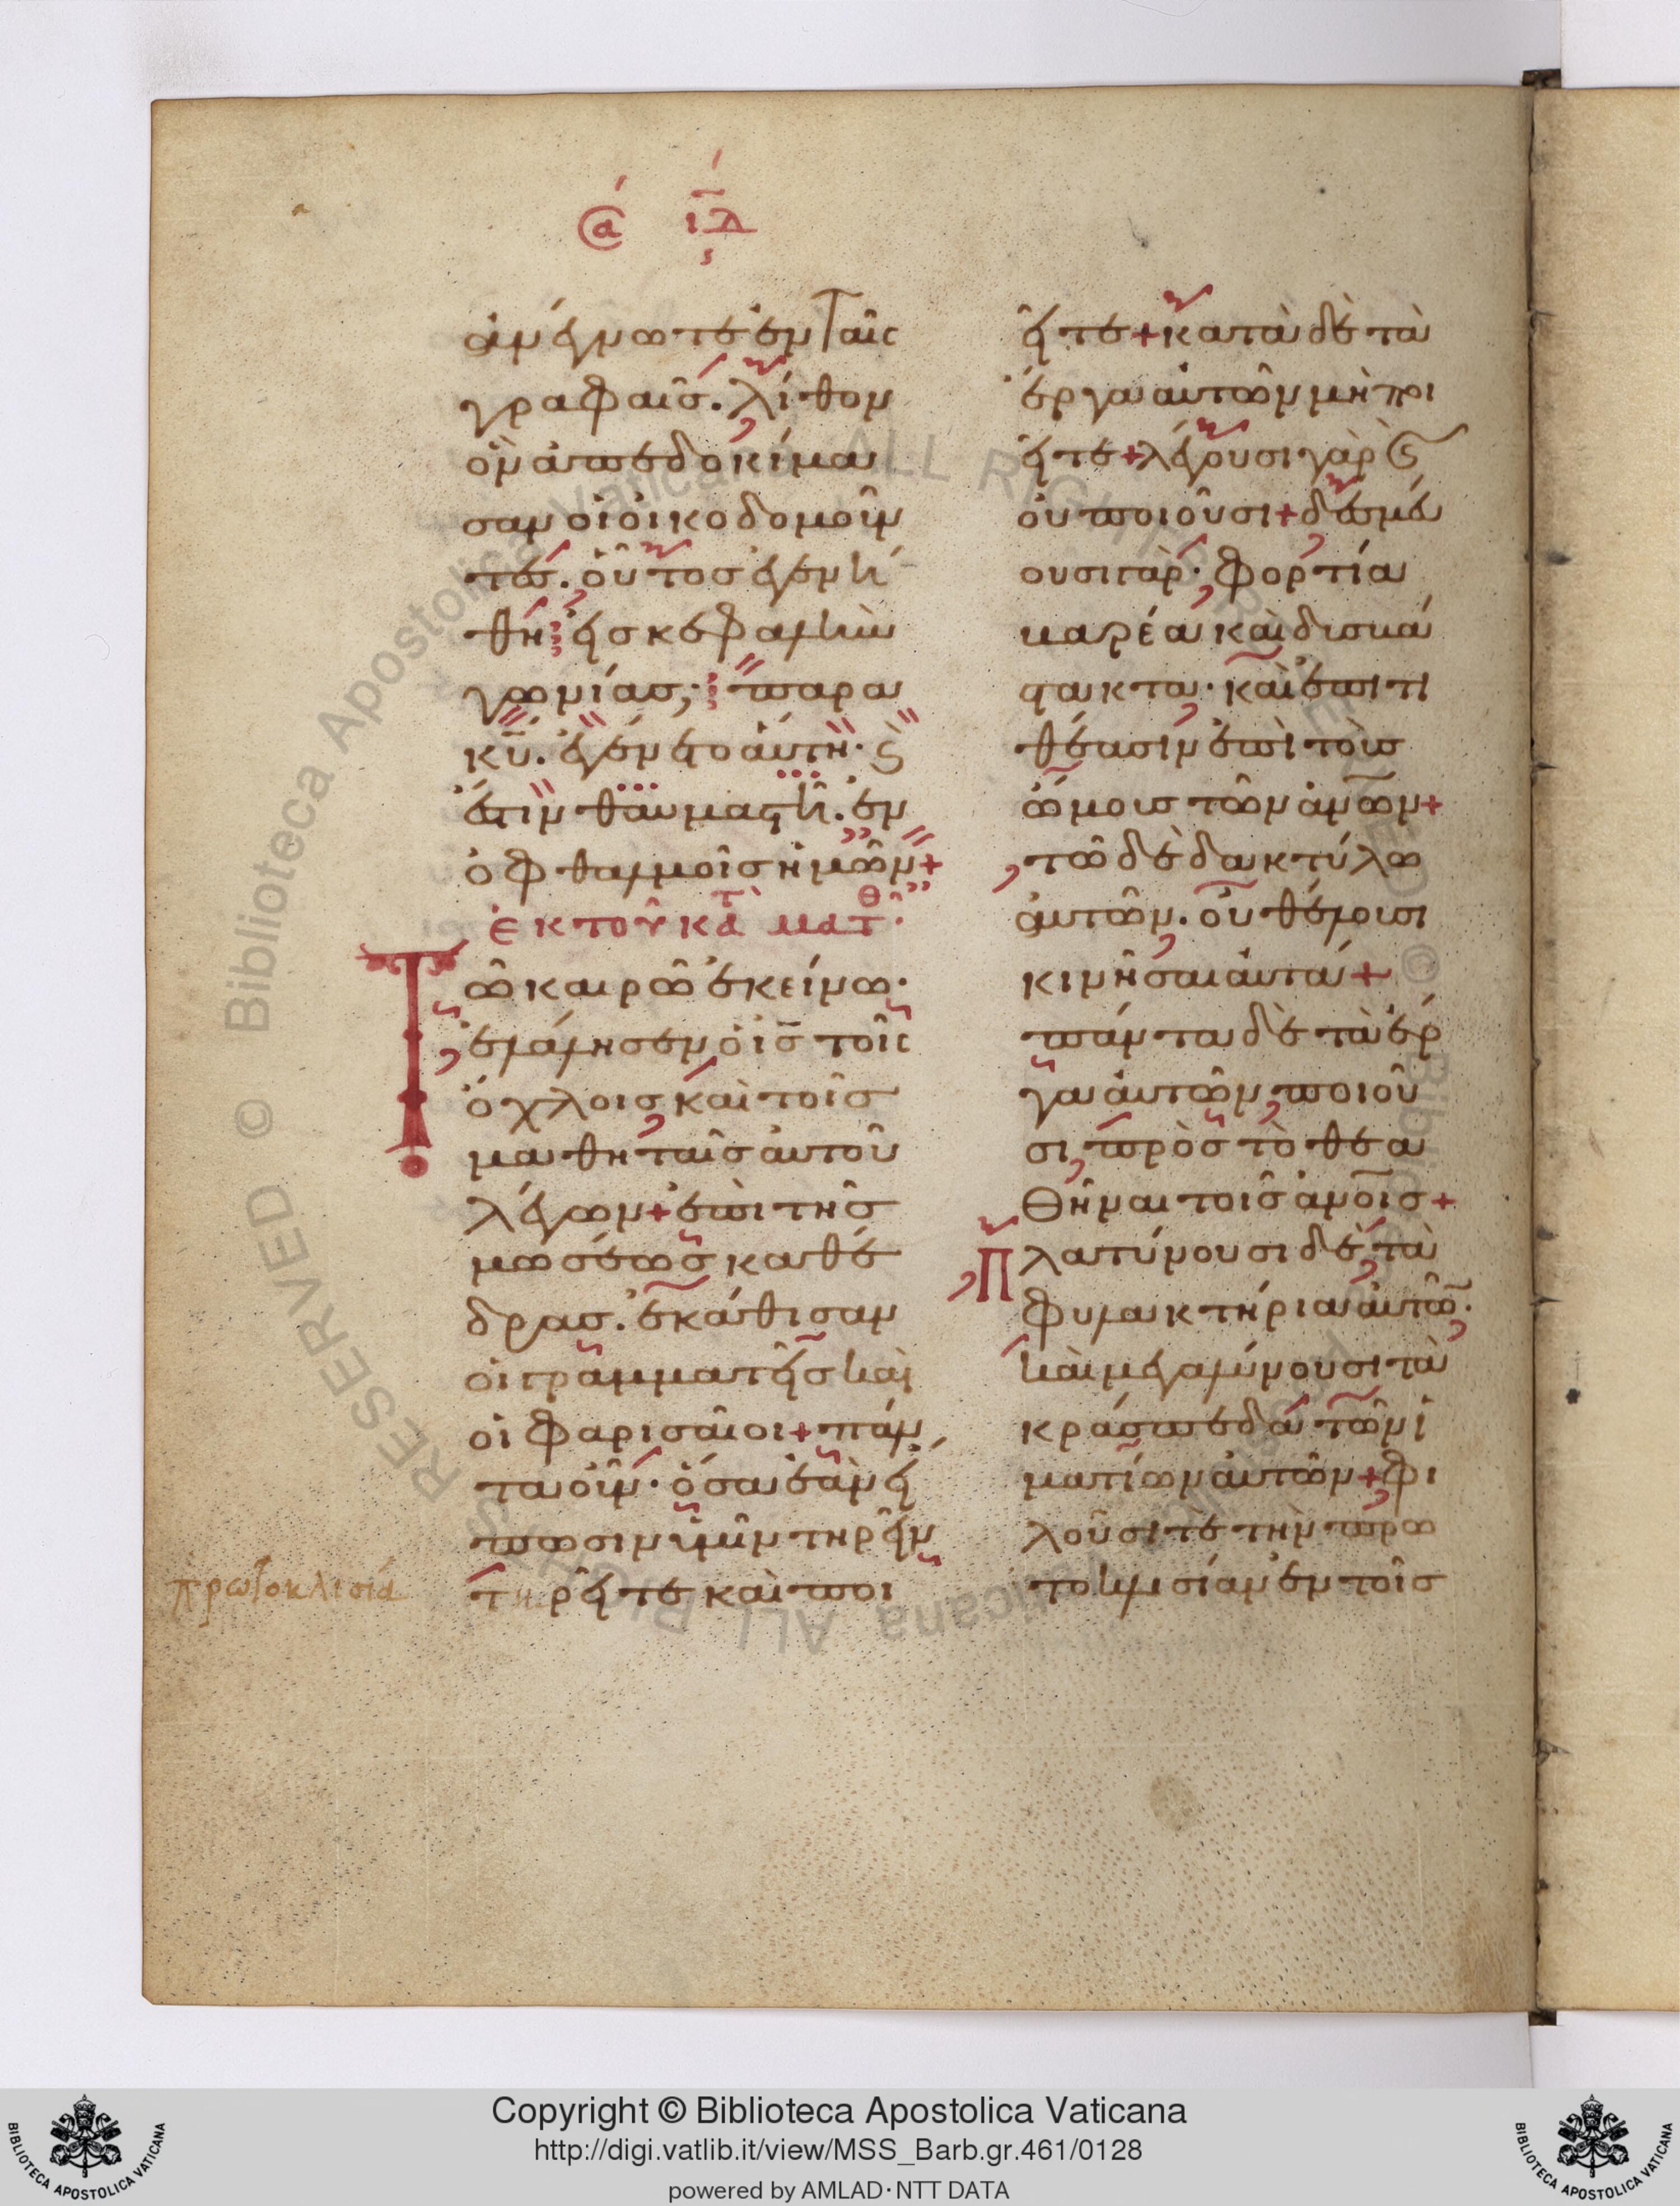 ἀ ιδ
ἀνέγνωτε ἐν ταῖς
γραφαῖς. λίθον
ὃν ἀπεδοκίμα
σαν οἱ οἰκοδομοῦν
τες. οὗτος ἐγενή
θη εἰς κεφαλὴν
γωνίας, παρα
κῡ. ἐγένετο ἁύτη. ϗ
ἔστιν θαυμαστὴ. ἐν
ὀφθαλμοῖς ἡμῶν+
ἐκ τοῦ κατὰ ματθ
Τῶ καιρῶ ἐκείνω.
ἐλάλησεν ὁ ις̄ τοῖς
ὄχλοις καὶ τοῖς
μαθηταῖς ἀυτοῦ
λέγων+ ἐπὶ τῆς
μωσέως καθέ
δρας. ἐκάθισαν
οἱ γραμματεῖς καὶ
οἱ φαρισαῖοι+ πάν
τα οὖν. ὅσα ἐὰν εἴ
πωσιν ὑμῖν τηρεῖν
τηρεῖτε καὶ ποι
πρωτοκλισία
εῖτε+ κατὰ δὲ τὰ
ἔργα ἀυτῶν μὴ ποι
εῖτε+ λέγουσι γὰρ ϗ
οὐ ποιοῦσι+ δεσμεύ
ουσι γὰρ. φορτία
βαρέα καὶ δυσβά
στακτα. καὶ ἐπιτι
θέασιν ἐπὶ τοὺς
ὤμους τῶν ἀνω̄ν+
τῶ δὲ δακτύλω
ἀυτῶν. οὐ θέλουσι
κινῆσαι ἀυτά+
πάντα δὲ τὰ ἔρ
γα ἀυτῶν ποιοῦ
σι, πρὸς τὸ θεα
θῆναι τοῖς ἀνο̄ις+
Πλατύνουσι δὲ τὰ
φυλακτήρια ἀυτῶ̄.
καὶ μεγαλύνουσι τὰ
κράσπεδα τῶν ἱ
ματίων ἀυτῶν+ φι
λοῦσί τε τὴν πρω
τοκλισίαν ἐν τοῖς
Copyright © Biblioteca Apostolica Vaticana
http://digi.vatlib.it/view/MSS_Barb.gr.461/0128
powered by AMLAD·NTT DATA